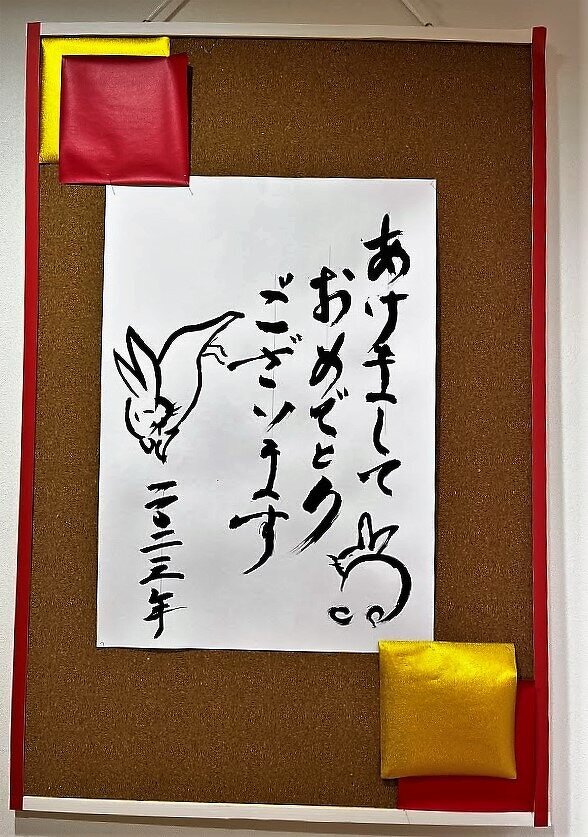 あけまして
おめでとう
ございます
二〇二三年